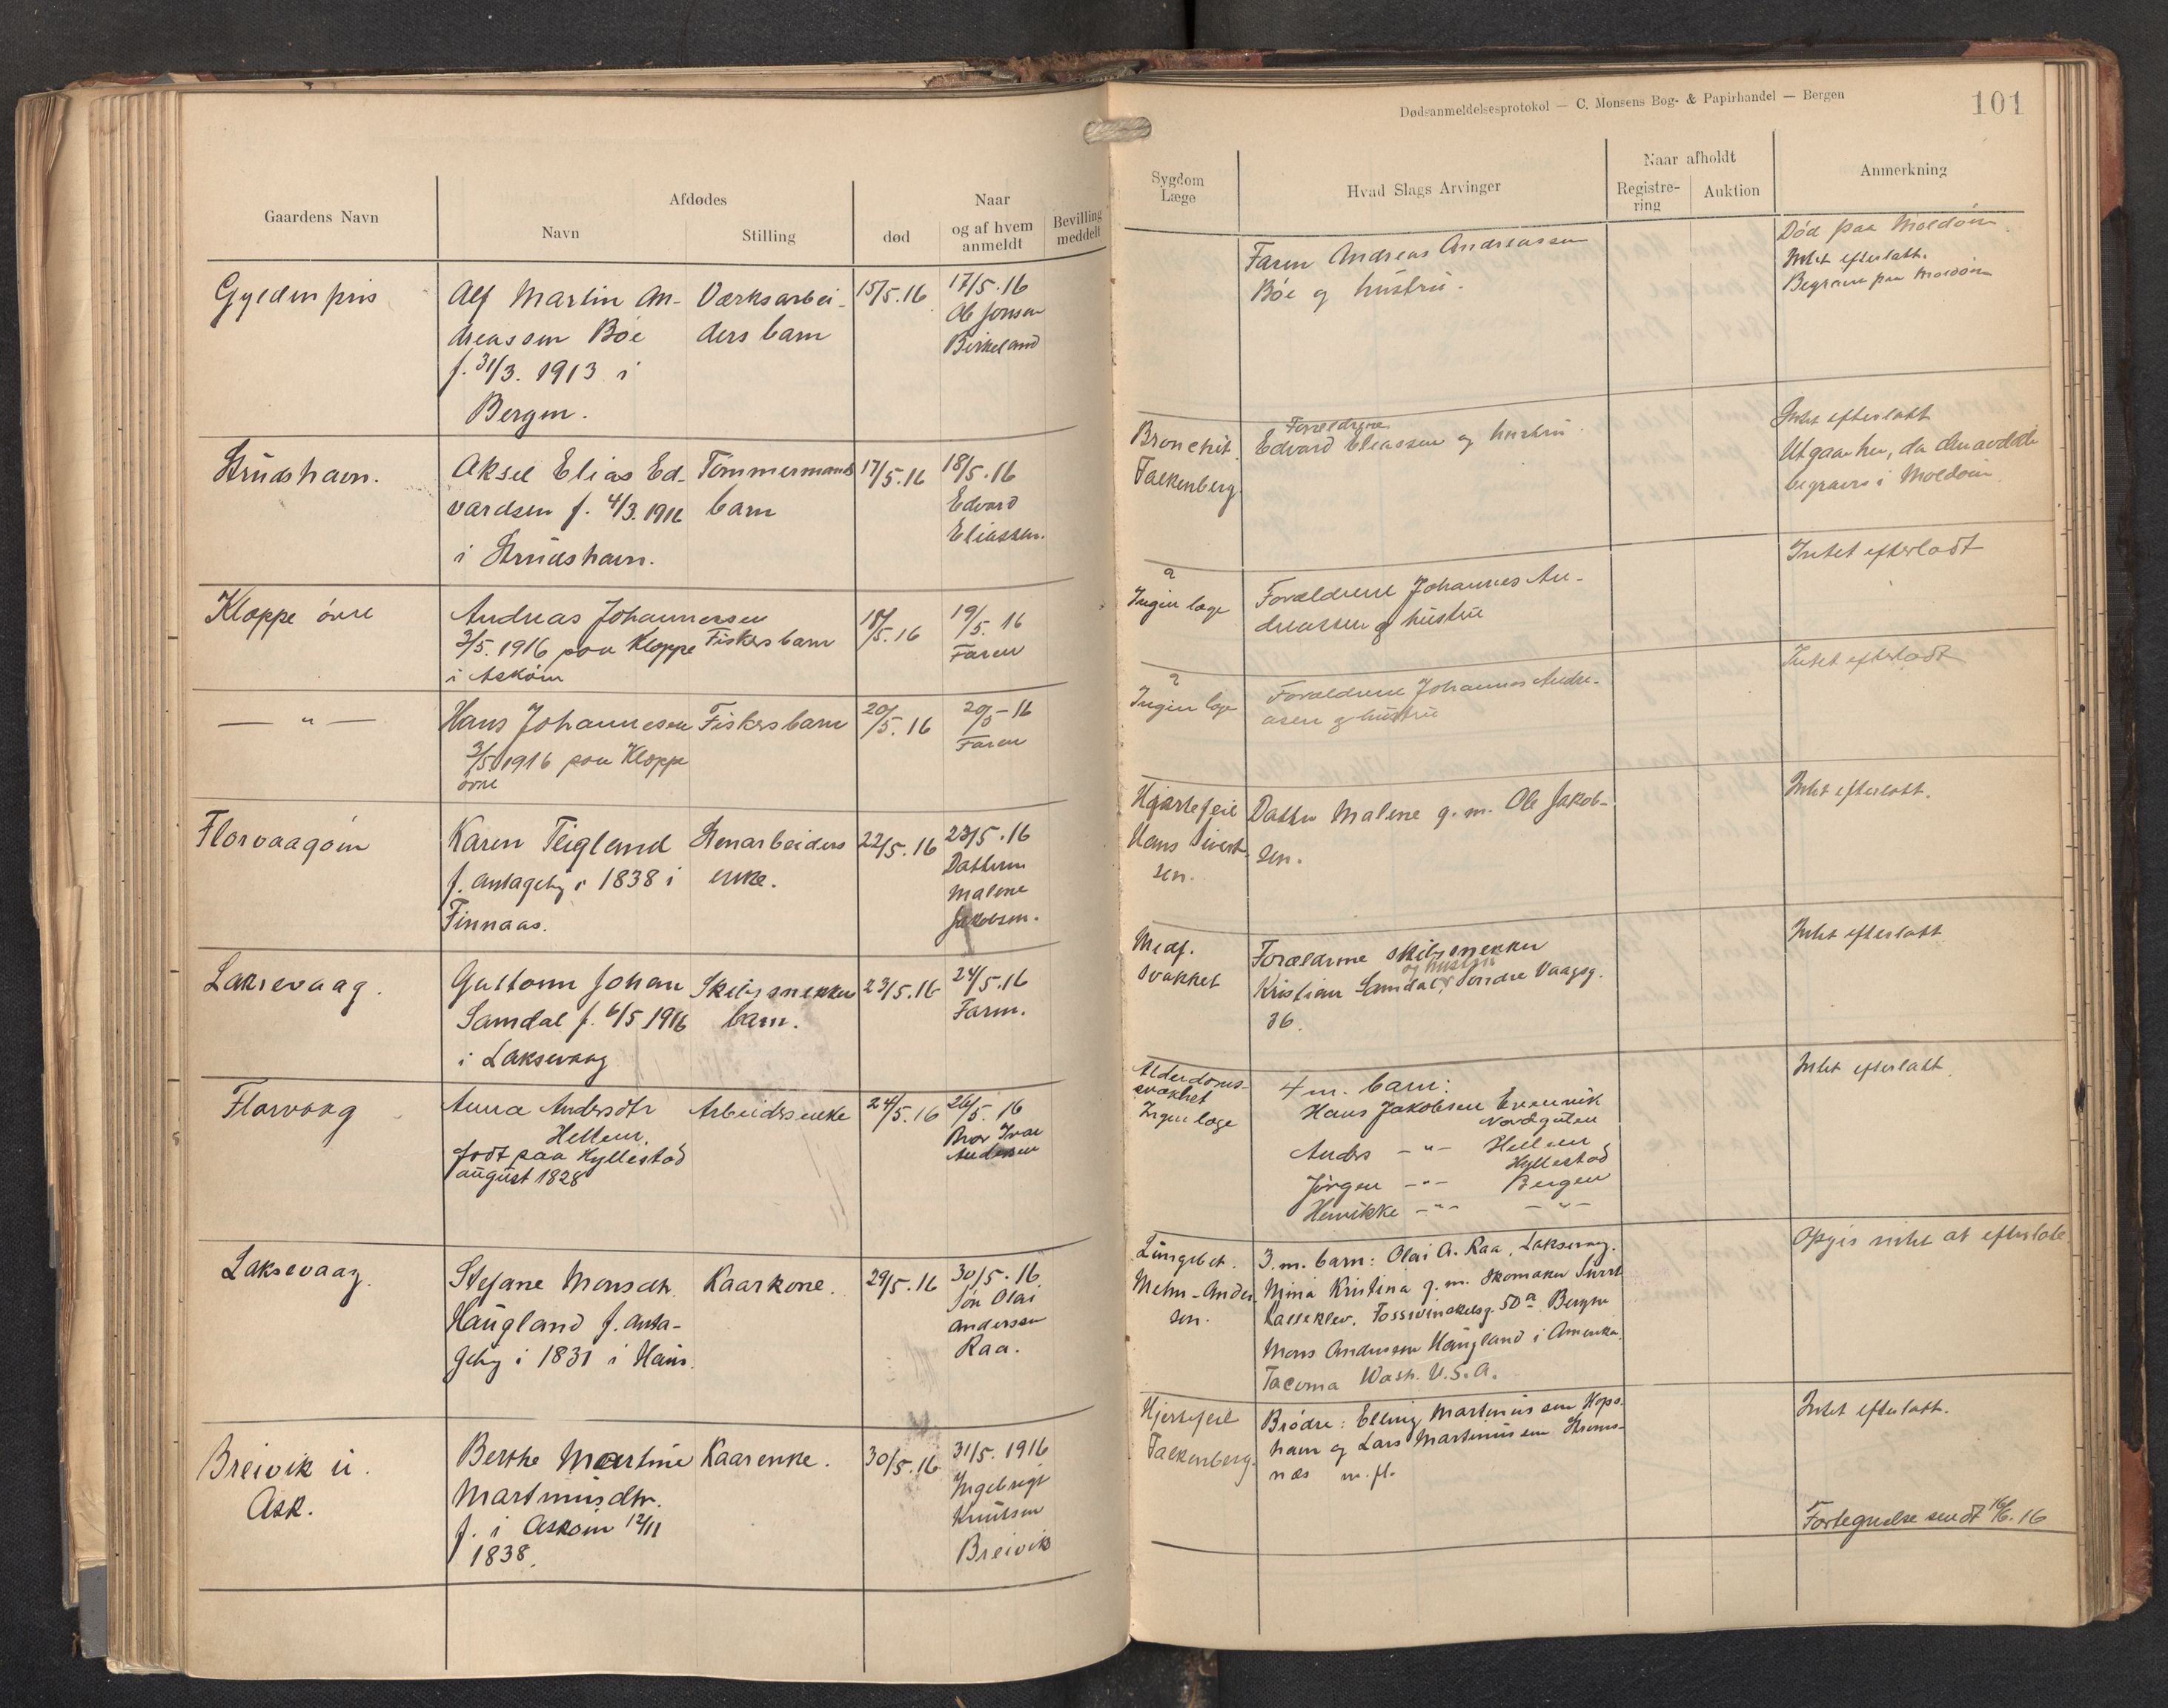 Dødsanmeldelsesprotokol — C. Monsens Bog- & Papirhandel — Bergen
101
Gaardens Navn
Afdødes
Navn
Stilling
død
Naar
og af hvem
anmeldt
Bevilling
meddelt
Sygdom
Læge
Hvad Slags Arvinger
Naar afholdt
Registre-
ring
Auktion
Anmerkning
Gyldenpris
Alf Martin An-
dreassen Bøe
f. 31/3. 1913 i
Bergen.
Værksarbei-
ders barn
15/5.16
17/5.16
Ole Jonsen
Birkeland
Faren Andreas Andreassen
Bøe og hustru.
Død paa Moldøen
Intet efterlatt.
Begraves paa Moldøen
Strudshavn.
Aksel Elias Ed-
vardsen f. 4/3. 1916
i Strudshavn.
Tømmermands
barn
17/5.16
18/5.16
Edvard
Eliassen.
Bronchit.
Falkenberg
Forældrene
Edvard Eliassen og hustru.
Intet efterlatt
Utgaar her, da den avdøde
begraves i Moldøen
Kloppe øvre
Andreas Johannesen
3/5. 1916 paa Kloppe
i Askøen
Fiskers barn
18/5.16
19/5. 16
Faren
?
Ingen læge
Forældrene Johannes An-
dreassen og hustru
Intet efterladt
— " —
Hans Johannesen
3/5 1916 paa Kloppe
øvre
Fiskers barn
20/5.16
20/5-16
Faren
?
Ingen læge
Forældrene Johannes Andre-
asen og hustru
Intet efterladt
Florvaagøen
Karen Teigland
f. antagelig i 1838 i
Finnaas.
Stenarbeiders
enke.
22/5.16
23/5.16
Datteren
Malene
Jakobsen.
Hjertefeil
Hans Sivert-
sen.
Datter Malene g.m. Ole Jakob-
sen.
Intet efterlatt.
Laksevaag.
Guttorm Johan
Samdal f. 6/5 1916
i Laksevaag
Skibssnekker
barn.
23/5.16
24/5.16
Faren.
Medf.
svakhet
Forældrene skibssnekker
og hustru
Kristian Samdal, Søndre Vaagsg.
36.
Intet efterlatt
Florvaag
Anna Andersdtr
Hellem.
født paa Hyllestad
august 1828
Arbeidsenke
24/5.16
26/5. 16
Bror Ivar
Andersen
Alderdoms-
svakhet
Ingen læge
4 m. barn:
Hans Jakobsen Evenvik
Nordgulen
Anders — " — Hellem
Hyllestad
Jörgen — " — Bergen
Henrikke — " — — " —
Intet efterlatt.
Laksevaag.
Stefane Monsdtr.
Haugland f. anta-
gelig i 1831 i Haus.
Kaarkone.
29/5.16
30/5.16
Søn Olai
Anderssen
Raa.
Lungebet.
Mehn-Ander-
sen.
3. m. barn: Olai A. Raa, Laksevaag.
Nina Kristina g.m. Skomaker Sivert
Kalleklev, Fossvinckelsg. 50a Bergen
Mons Anderssen Haugland i Amerika.
Tacoma Wash. U.S.A.
Opgis intet at efterlate.
Breivik u.
Ask.
Berthe Martine
Martinusdtr.
f. i Askøen 12/11
1838.
Kaarenke.
30/5.16
31/5. 1916
Ingebrigt
Knutsen
Breivik
Hjertefeil
Falkenberg.
Brødre: Elling Martinussen Hops-
havn og Lars Martinussen Strøms-
næs m.fl.
Intet efterlatt.
Fortegnelse sendt 16/6.16